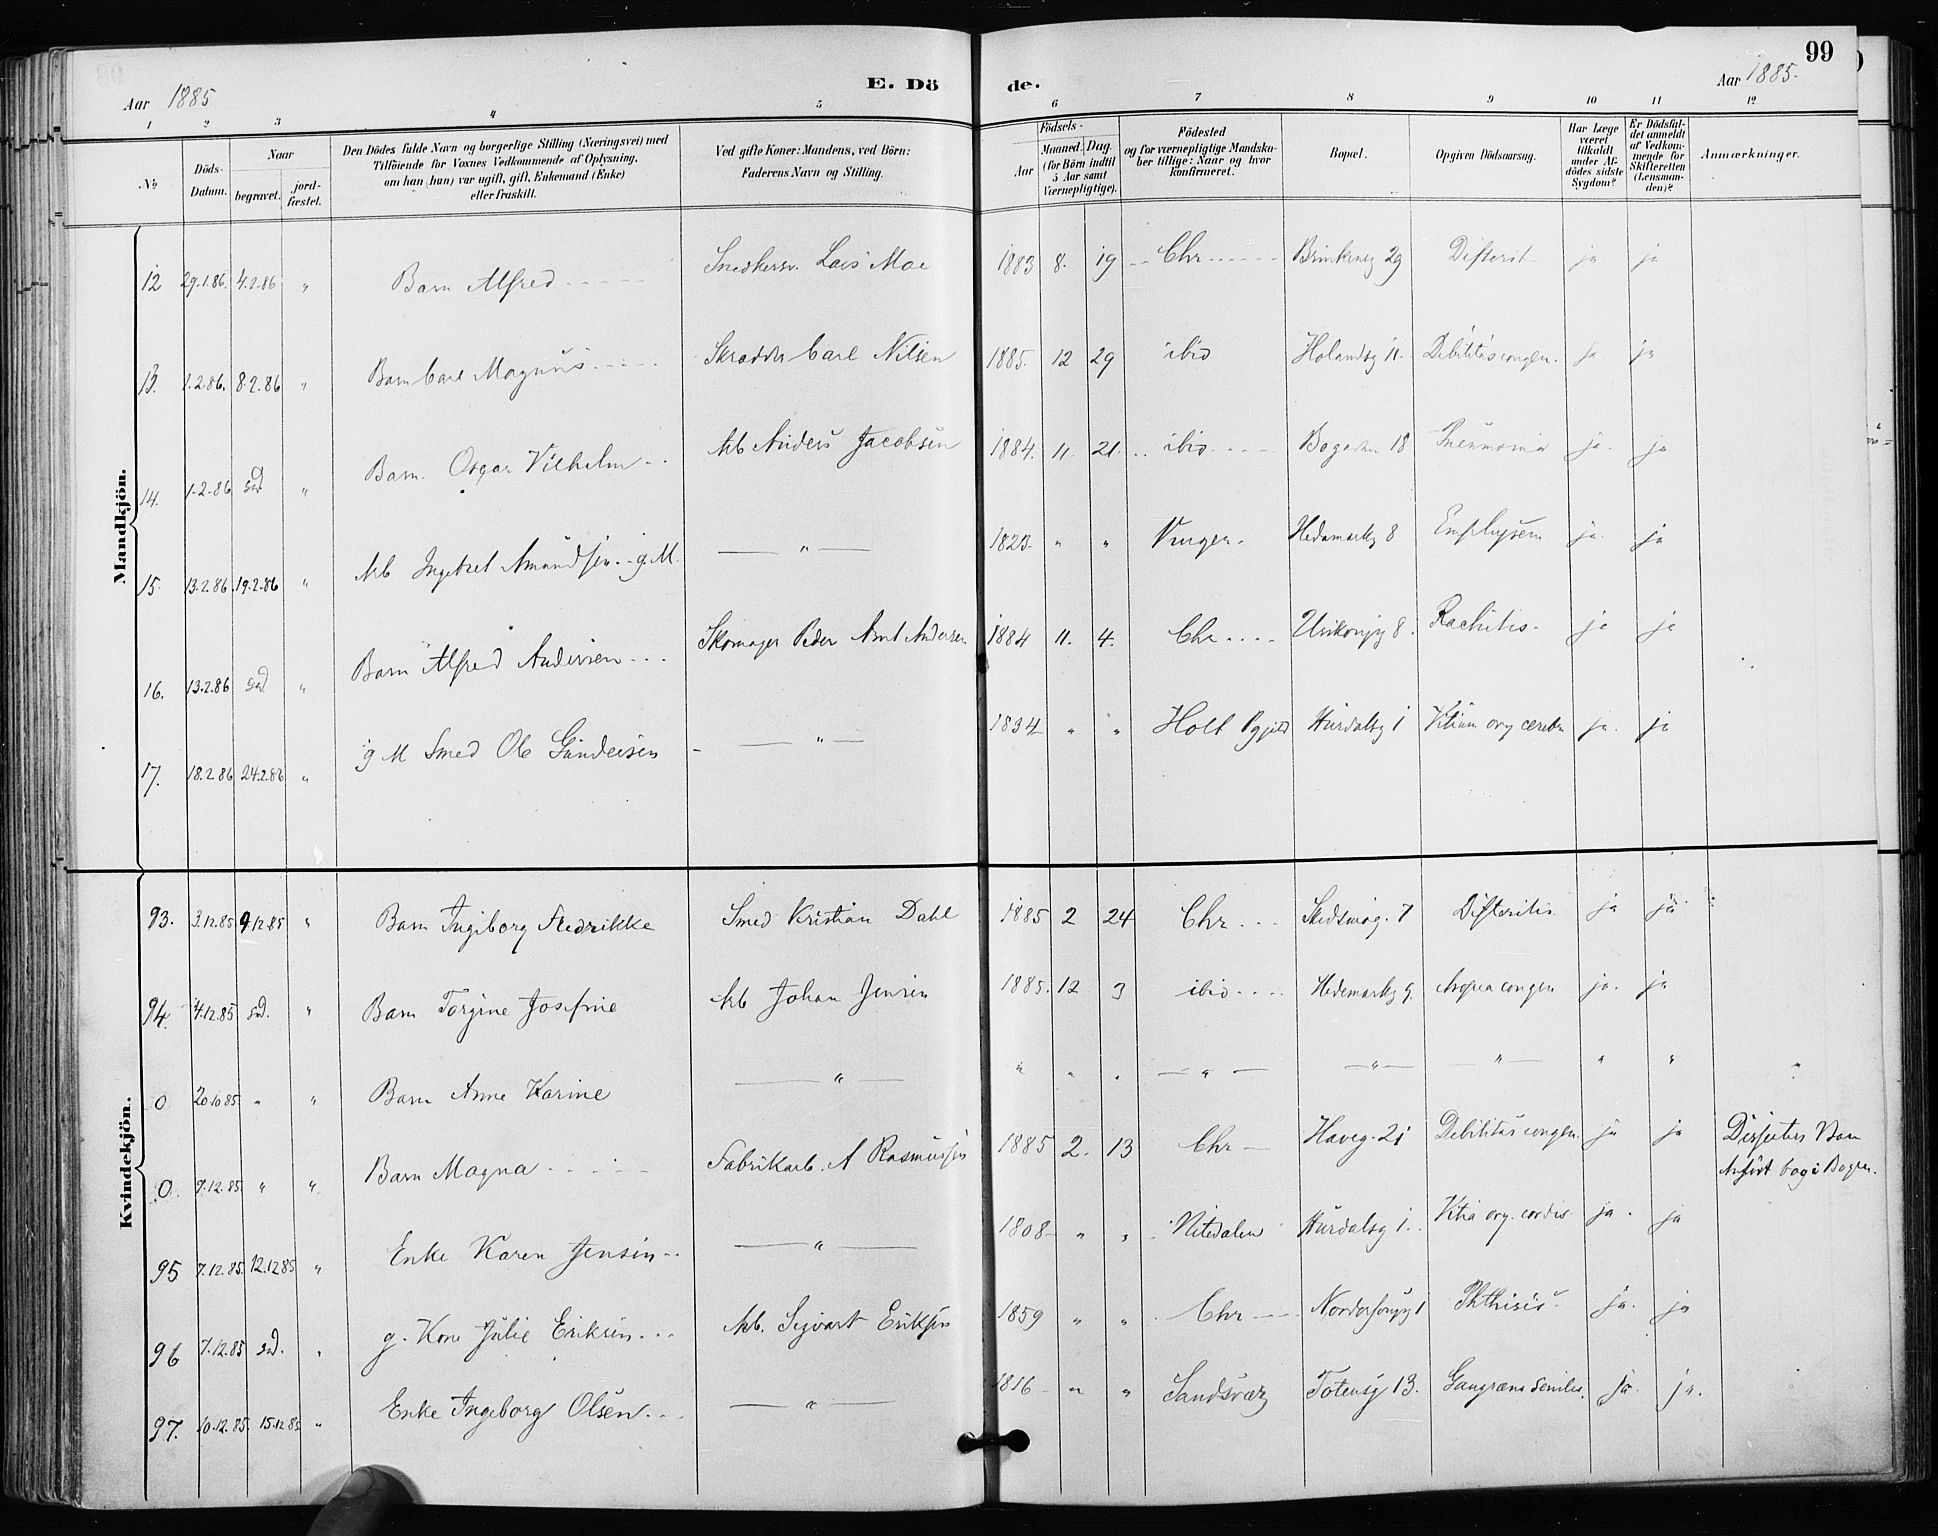 99
Aar 1885 E. Dö de. Aar 1885.
1 2 3 4 5 6 7 8 9 10 11 12
No Döds-Datum. Naar begravet. jord-fæstet. Den Dödes fulde Navn og borgerlige Stilling (Næringsvei) med Tilföiende for Voxnes Vedkommende af Oplysning, om han (hun) var ugift, gift, Enkemand (Enke) eller fraskilt. Ved gifte Koner: Mandens, ved Börn: Faderens Navn og Stilling. Födsels- Aar Maaned. Dag (for Börn indtil 5 Aar samt Værnepligtige). Födested og for værnepligtige Mandskaber tillige: Naar og hvor konfirmeret. Bopæl. Opgiven Dödsaarsag. Har Læge været tilkaldt under Afdödes sidste Sygdom? Er Dödsfaldet anmeldt af Vedkommende for Skifteretten (Lensmanden)? Anmærkninger.
Mandkjön.
12 29.1.86. 4.2.86 " Barn Alfred Snedkersv. Lars Moe 1883 8. 19 Chr Brinkenvg 29 Difterit. ja ja
13. 1.2.86. 8.2.86 " Barn Carl Magnus Skrædder Carl Nilsen 1885. 12 29 ibid Holandsg 11. Debilitas congen. ja ja
14. 1.2.86 sad " Barn. Oscar Vilhelm Arb Anders Jacobsen 1884. 11. 21. ibid 18 Pneumonia ja. ja
15. 13.2.86 19.2.86 " Arb Amundsen. g.M. — " — 1823. " " Hedemarkg 8 Emphysem ja. ja
16. 13.2.86 sad " Barn Alfred Andersen Skomager Peder Amt Andersen 1884 11. 4. Chr 8. Rachitis. ja ja
17. 18.2.86 24.2.86 " g M Smed Ole Gundersen — " — 1834 " " Holt Pgjeld Hurdalsg 1 Vitium org cerebr ja. ja
Kvindekjön.
93. 3.12.85 9.12.85 " Barn Ingiborg Fredrikke Smed Kristian Dahl 1885 2 24 Chr Skedsmog. 7 Difteritis ja ja
94. 4.12.85 sad. " Barn Torgine Josefine Arb Johan Jensen 1885. 12 3 ibid Hedemarkg 9. congen ja. ja
0 20.10.85 " " Barn Anne Karine — " — " " " — " — — " — — " — " " "
0. 7.12.85. " " Barn Magna Fabrikarb. A Rasmussen 1885 2. 13 Chr — Haveg. 21 Debilitas congen. ja ja Dissenter Barn Anført bag i Bogen.
95 7.12.85. 12.12.85 " Enke Karen Jensen — " — 1808 " " Nitedalen Hurdalsg 1. Vitia org. cordis ja. ja
96 7.12.85 sad. " g. Kone Julie Eriksen Arb. Sigvart Eriksen 1859 " " Chr 1 Phthisis. ja. ja
97. 10.12.85. 15.12.85 " Enke Ingeborg Olsen — " — 1816 " " Sandsvær Totensg 13. Gangræna senilis. ja. ja.